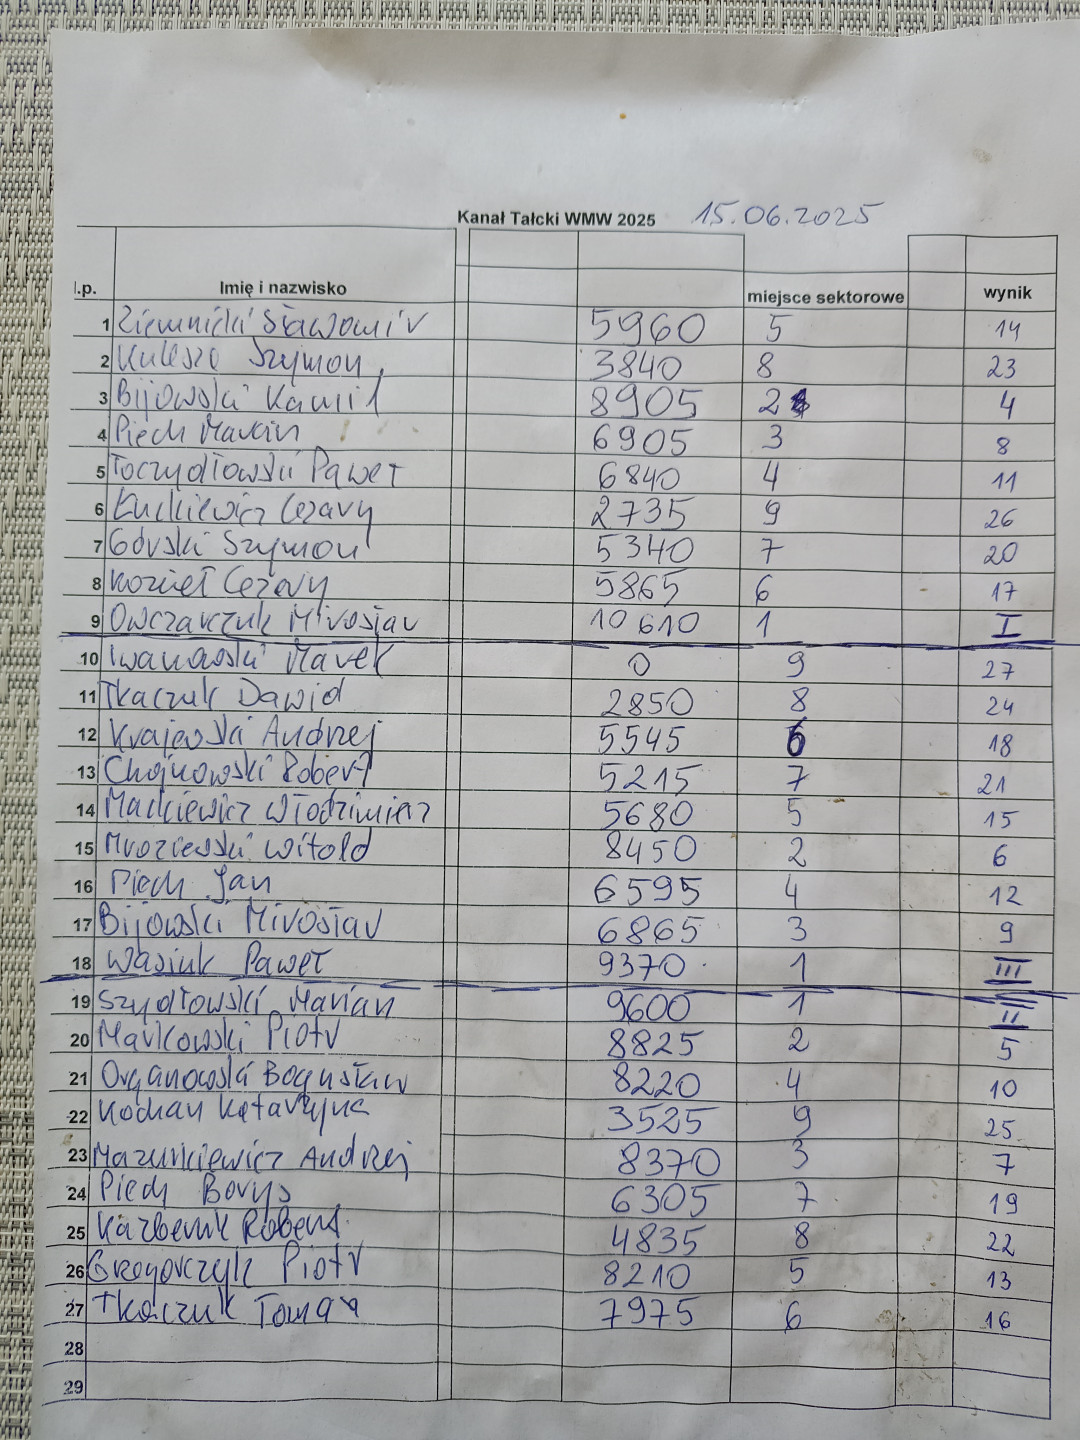 Kanał Tałcki WMW 2025 15.06.2025
l.p. Imię i nazwisko miejsce sektorowe wynik
1 Ziemnicki Sławomir 5960 5 14
2 Kulesza Szymon 3840 8 23
3 Bijowski Kamil 8905 2 4
4 Piech Marcin 6905 3 8
5 Toczydłowski Paweł 6840 4 11
6 Cezary 2735 9 26
7 Górski Szymon 5340 7 20
8 Kozieł Cezary 5865 6 17
9 Owczarczuk Mirosław 10 610 1 I
10 Iwanowski Marek 0 9 27
11 Tkaczuk Dawid 2850 8 24
12 Krajewski Andrzej 5545 6 18
13 Chojnowski Robert 5215 7 21
14 Mackiewicz Włodzimierz 5680 5 15
15 Mroziewski Witold 8450 2 6
16 Piech Jan 6595 4 12
17 Bijowski Mirosław 6865 3 9
18 Wasiuk Paweł 9370 1 III
19 Szydłowski Marian 9600 1 II
20 Markowski Piotr 8825 2 5
21 Organowski Bogusław 8220 4 10
22 Kochan Katarzyna 3525 9 25
23 Mazurkiewicz Andrzej 8370 3 7
24 Piech Borys 6305 7 19
25 Kazberuk Robert 4835 8 22
26 Grzegorczyk Piotr 8210 5 13
27 Tkaczuk Tomasz 7975 6 16
28
29